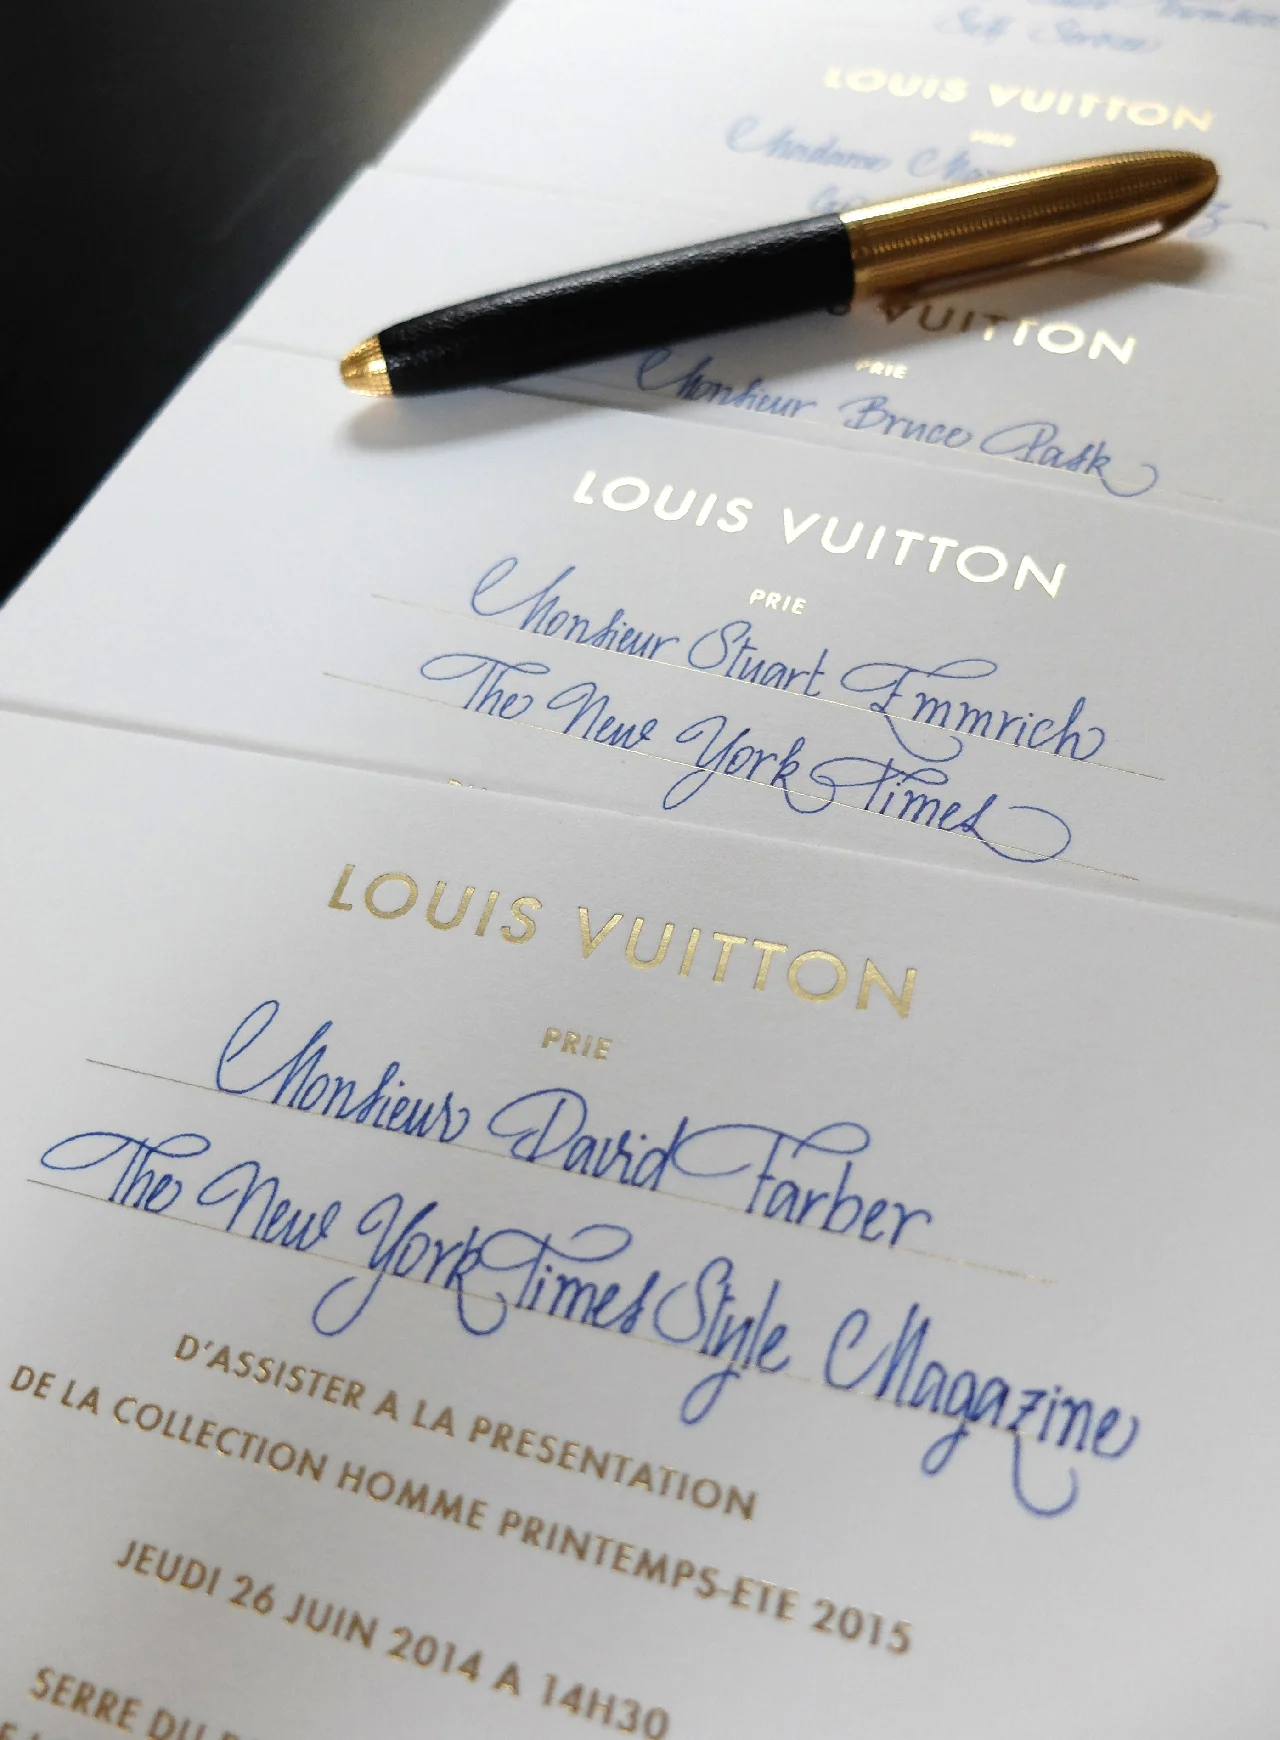 Self Service
LOUIS VUITTON
PRIE
Madame
VUITTON
PRIE
Monsieur Bruce Pask
LOUIS VUITTON
PRIE
Monsieur Stuart Emmrich
The New York Times
LOUIS VUITTON
PRIE
Monsieur David Farber
The New York Times Style Magazine
D'ASSISTER A LA PRESENTATION
DE LA COLLECTION HOMME PRINTEMPS-ETE 2015
JEUDI 26 JUIN 2014 A 14H30
SERRE DU